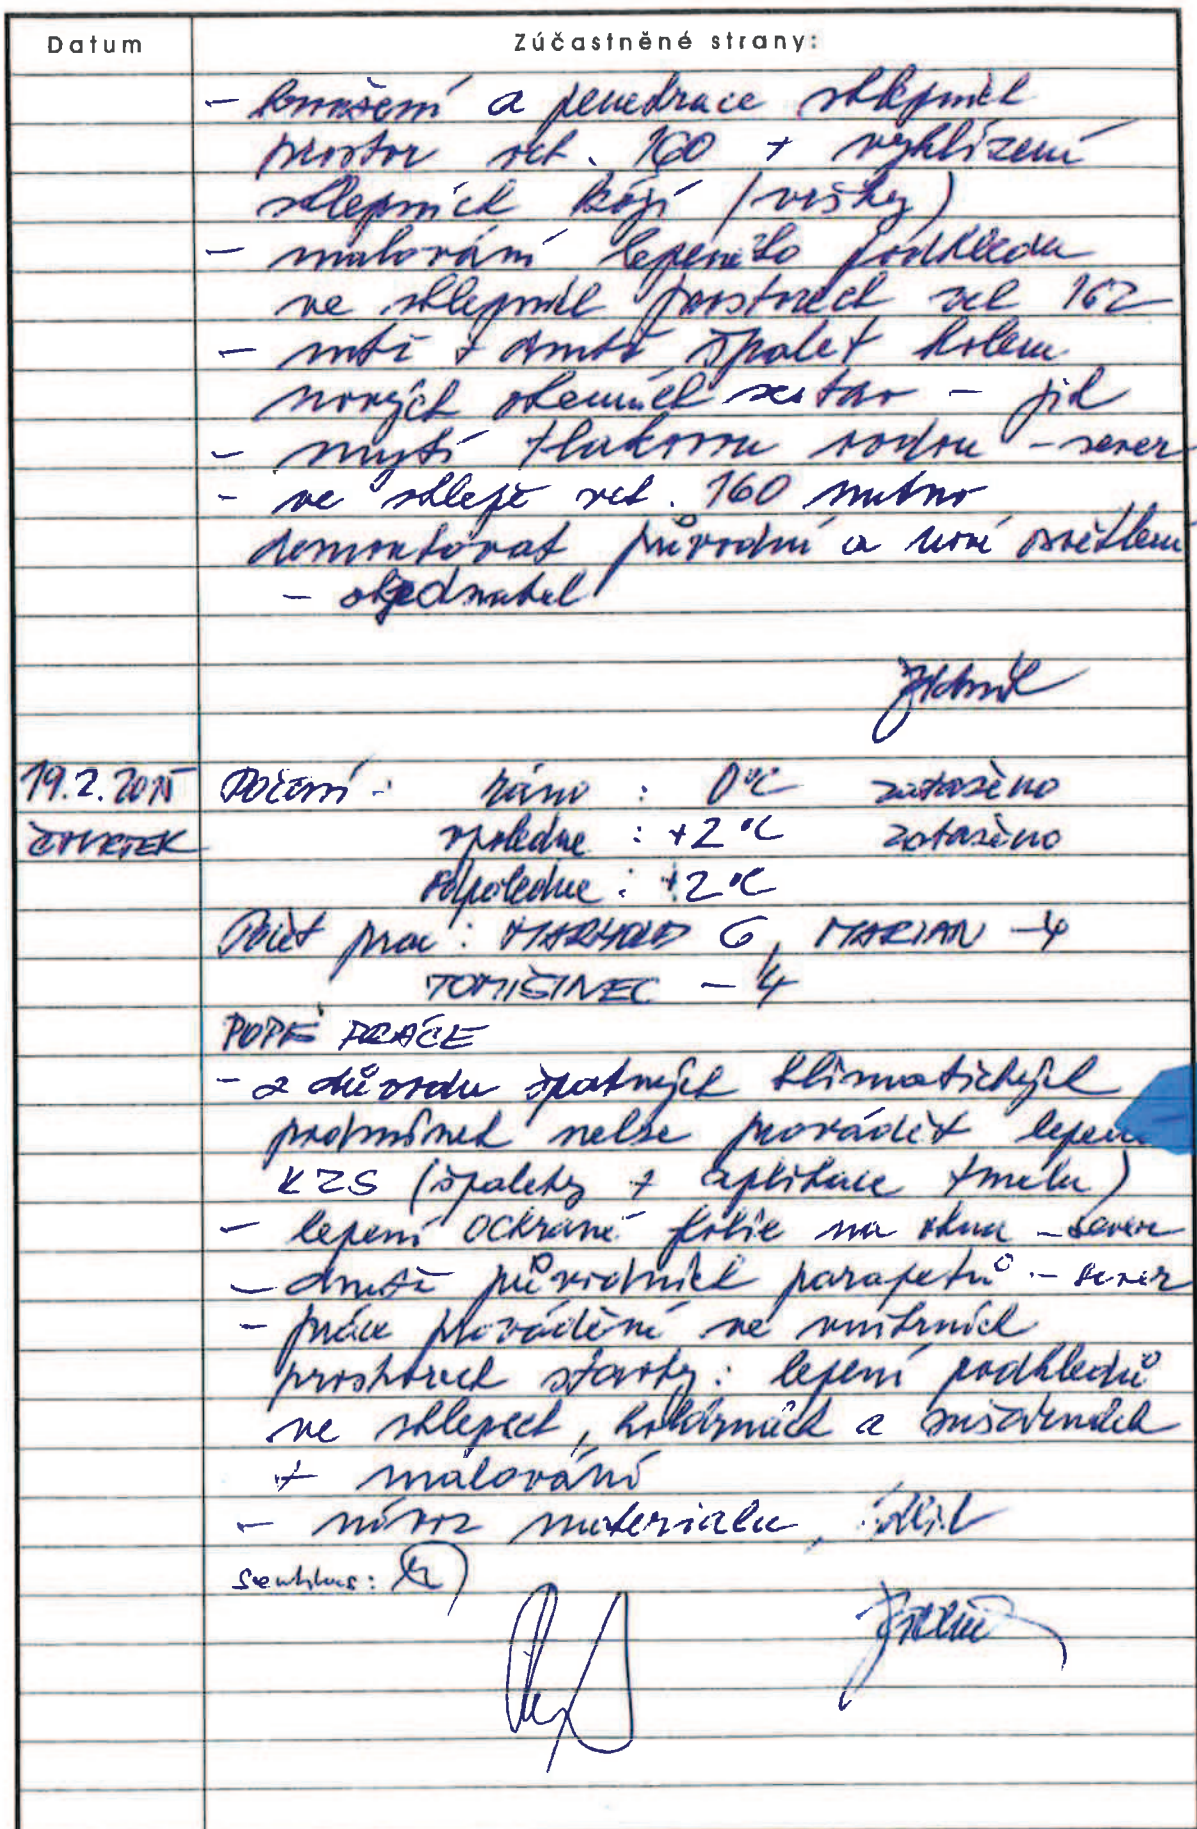 Datum Zúčastněné strany:
- broušení a penedrace sklepních
prostor vch. 160 + vyklízení
sklepních kójí (vršky)
- malování lepeného podhledu
ve sklepních prostorech vch 162
- mytí + drnutí špalet kolem
nových okenních sestav - jih
- mytí tlakovou vodou - sever
- ve sklepě vch. 160 nutno
demontovat původní a nové osvětlení
- objednatel
19.2.2015 Počasí: ráno : 0°C zataženo
ČTVRTEK v poledne : +2°C zataženo
odpoledne : +2°C
Počet prac : MARHOLD 6, MARIAN - 4
TOMIŠINEC - 4
POPIS PRÁCE
- z důvodu špatných klimatických
podmínek nelze provádět lepení
KZS (špalety + aplikace tmelu)
- lepení ochrané folie na okna - sever
- drnutí původních parapetů - sever
- práce provádění ve vnitrních
prostorech stavby: lepení podhledů
ve sklepech, kolárnách a sušárnách
+ malování
- návoz materialu, úklid
Souhlas: